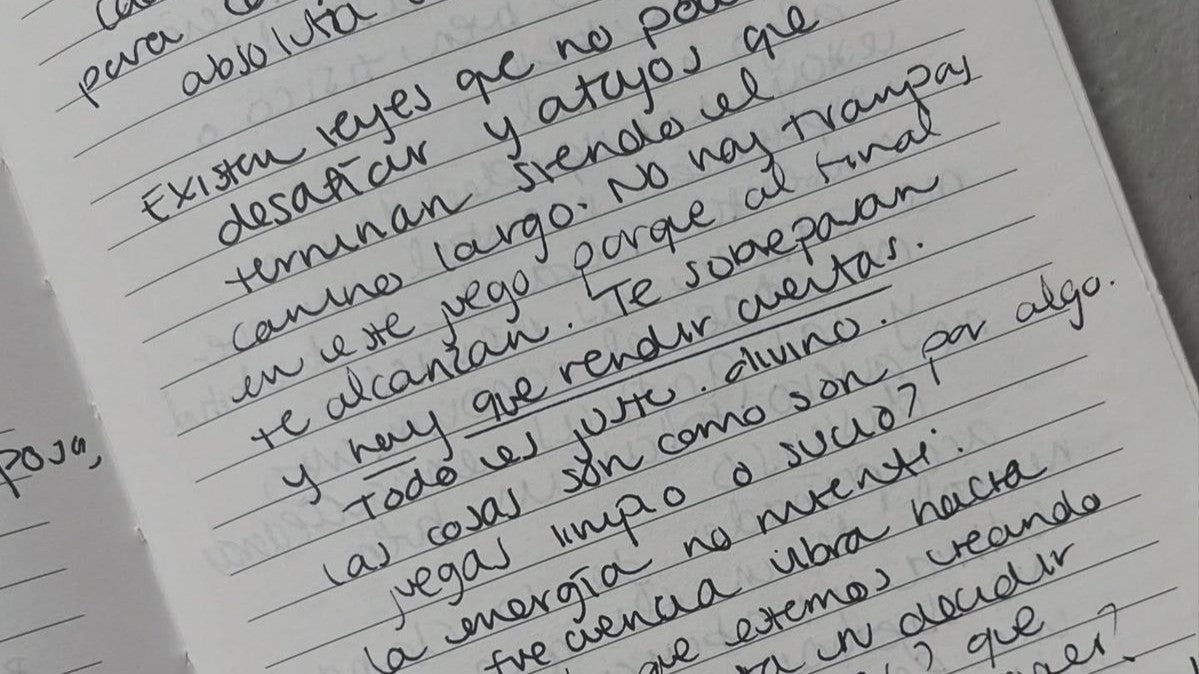 para
absoluta
Existen leyes que no
desafiar y atajos que
terminan siendo el
camino largo. No hay trampas
en este juego porque al final
te alcanzan. Te sobrepasan
y hay que rendir cuentas.
Todo es juste. divino.
las cosas son como son por algo.
juegas limpio o sucio?
la energía no miente.
frecuencia vibra hacia
que estemos creando
decidir
que
posa,